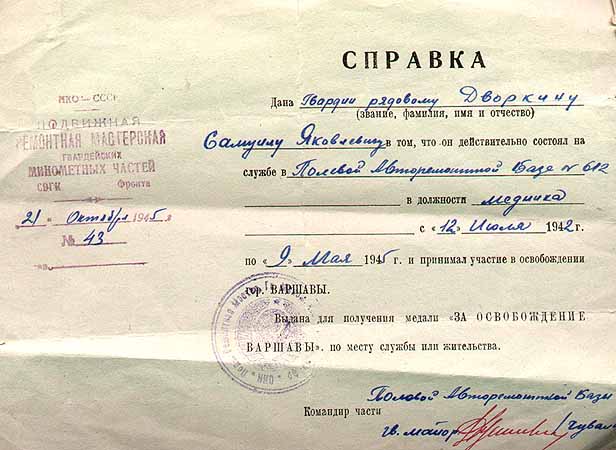 СПРАВКА
НКО - СССР
ПОДВИЖНАЯ
РЕМОНТНАЯ МАСТЕРСКАЯ
ГВАРДЕЙСКИХ
МИНОМЕТНЫХ ЧАСТЕЙ
Фронта
"21" Октября 1945 г
№ 43
Дана Гвардии рядовому Дворкину
(звание, фамилия, имя и отчество)
Самуилу Яковлевичу в том, что он действительно состоял на
службе в Полевой Авторемонтной Базе № 612
в должности медника
с «12» Июля 1942 г.
по «9» Мая 1945 г. и принимал участие в освобождении
гор. ВАРШАВЫ.
Выдана для получения медали «ЗА ОСВОБОЖДЕНИЕ
ВАРШАВЫ», по месту службы или жительства.
Полевой Авторемонтной Базы
Командир части
гв. майор